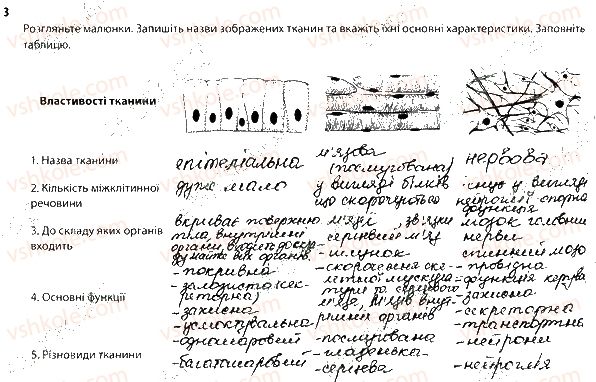 3
Розгляньте малюнки. Запишіть назви зображених тканин та вкажіть їхні основні характеристики. Заповніть
таблицю.
Властивості тканини
1. Назва тканини
епітеліальна
м'язова
(посмугована)
нервова
2. Кількість міжклітинної
речовини
дуже мало
у вигляді білків
що скорочуються
існує у вигляді
нейроглії опорна
функція
3. До складу яких органів
входить
вкриває поверхню
тіла, внутрішні
органи,
органів.
м'язи, зв'язки
серцевий м'яз
- шлунок
мозок головний
нерви
спинний мозо
4. Основні функції
- покривна
- залозиста (сек-
реторна)
- захисна
- усмоктувальна
- скорочення ске-
летної мускула-
тури та серцевого
м'яза, м'язів внут-
рішніх органів
- провідна
- функція керува
- захисна
- секреторна
- транспортна
5. Різновиди тканини
- одношаровий
- багатошаровий
- посмугована
- гладенька
- серцева
- нейрони
- нейроглія